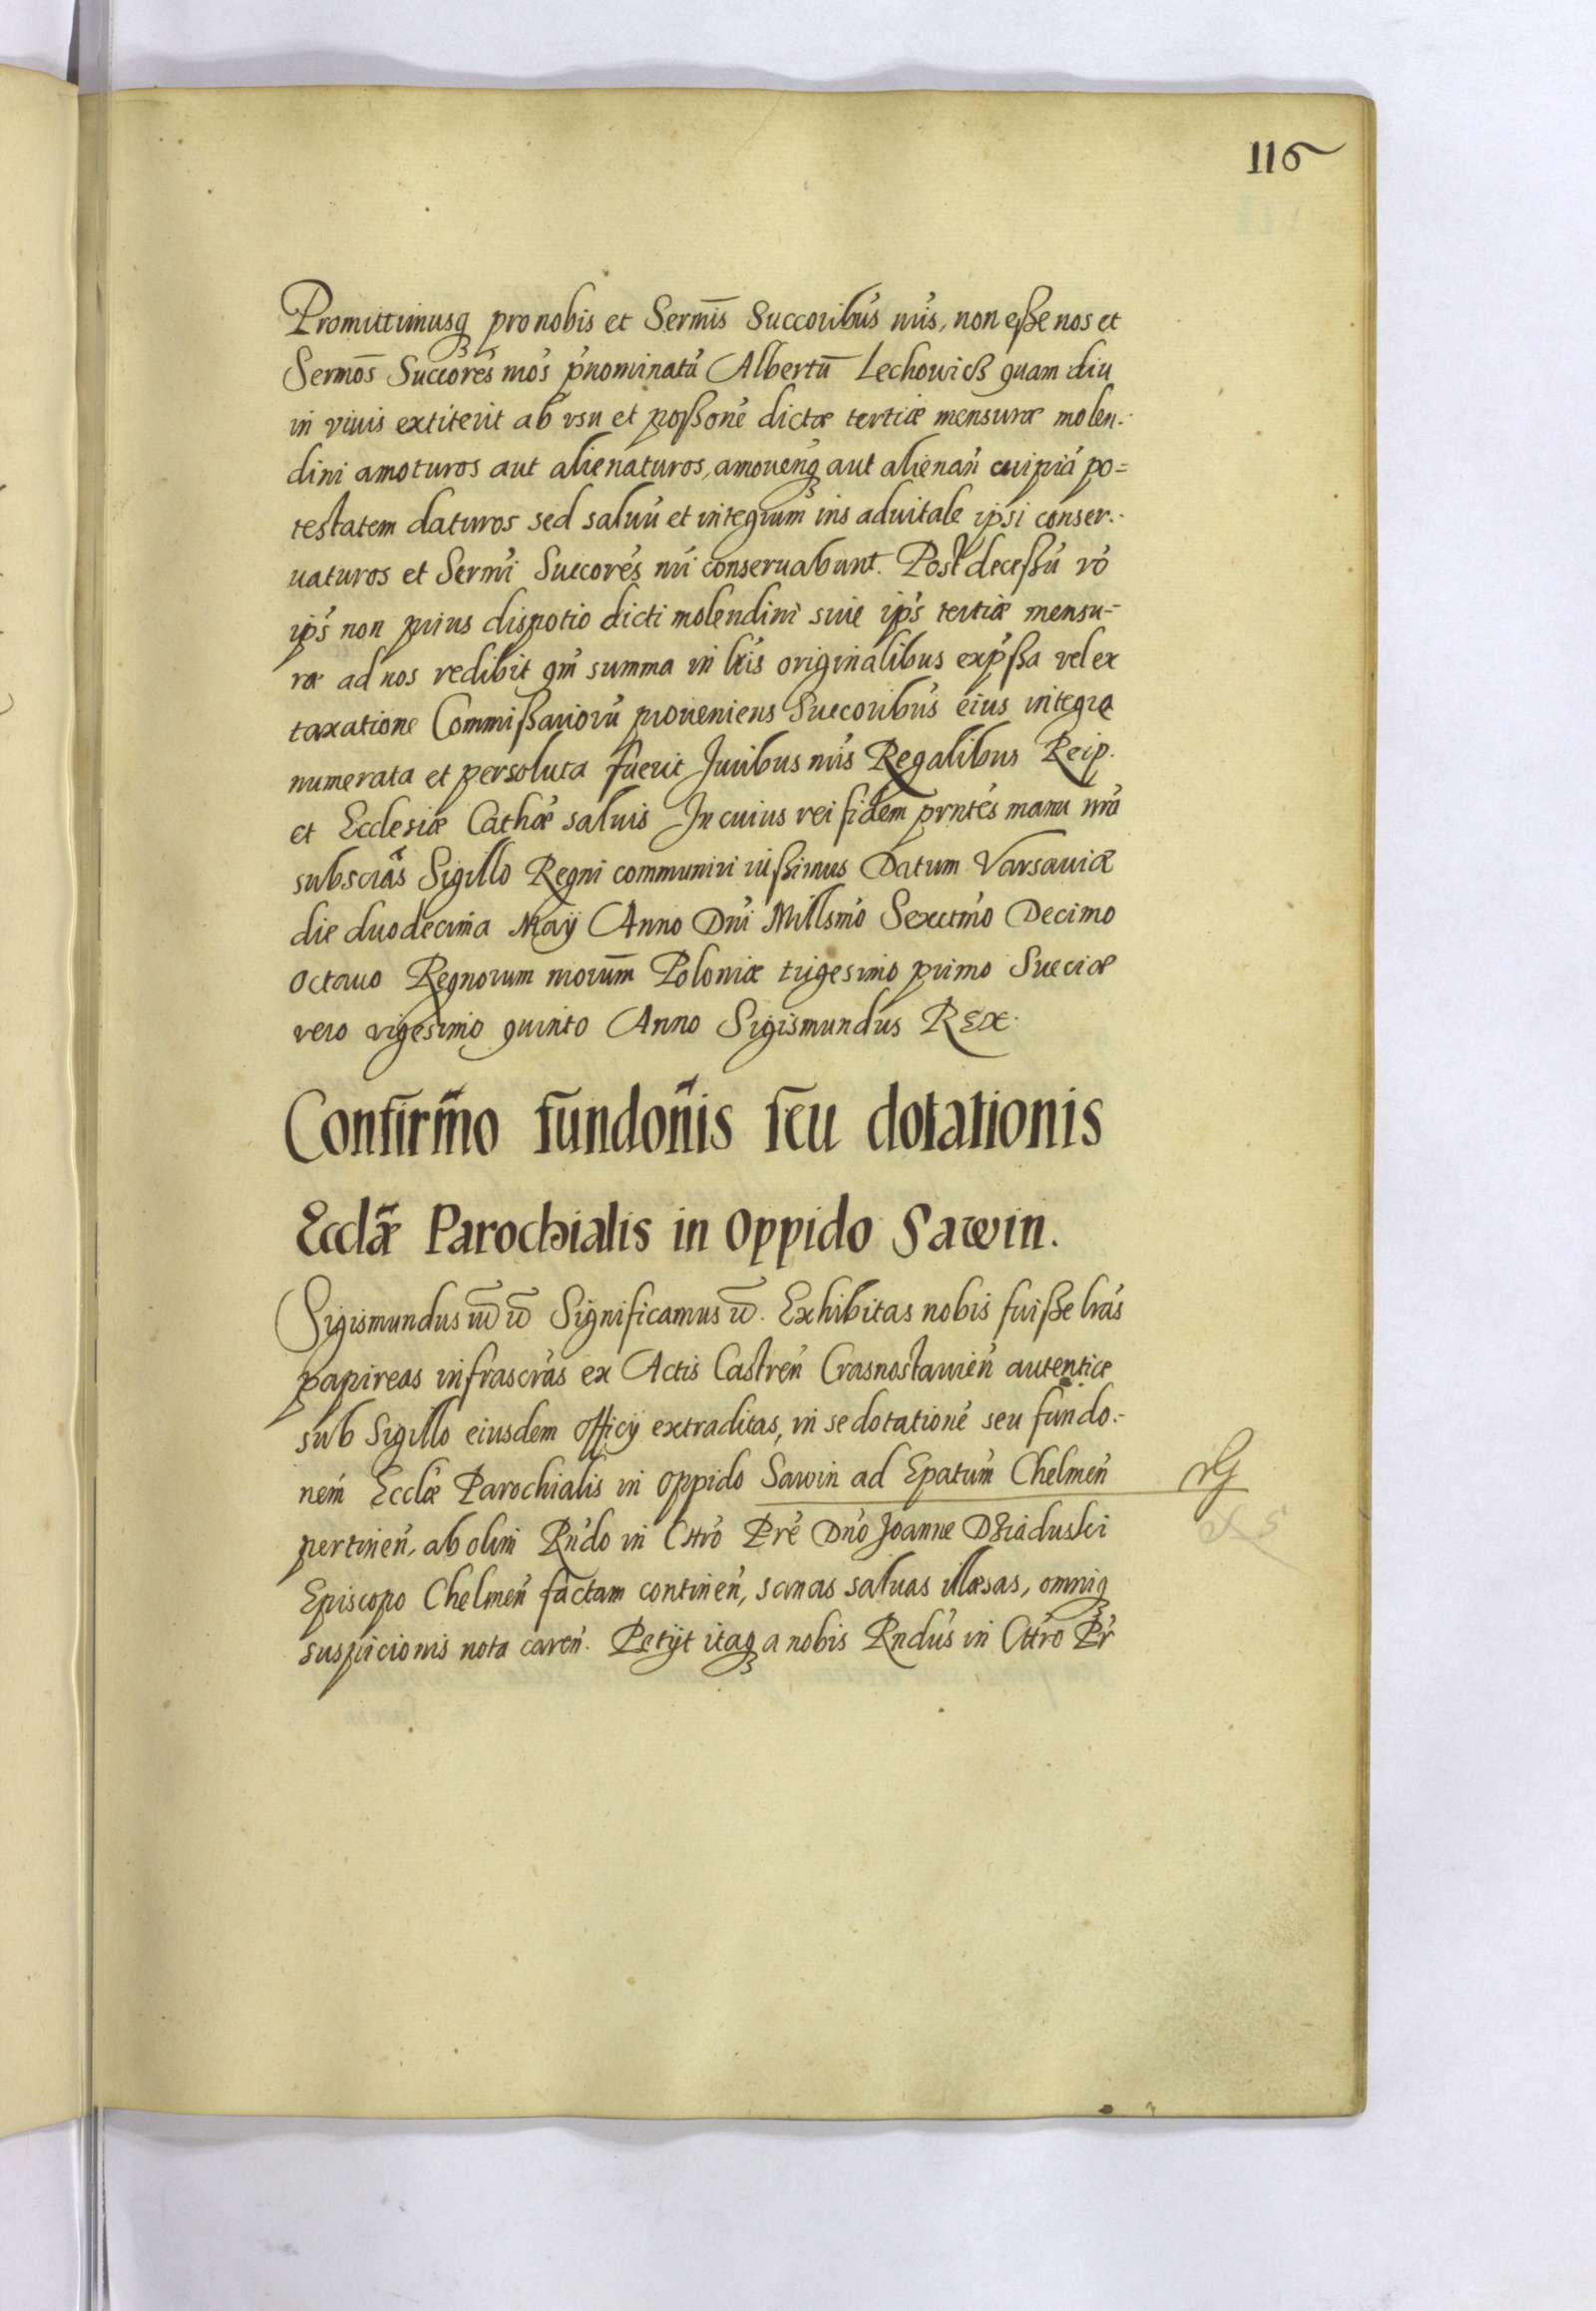 116
Promittimusq3 pro nobis et Serm̄is Succoribus nr̃is, non eße nos et
Sermōs Succores nr̃os p̃nominatu̇ Albertū Lechowicß quam diu
in viuis extiterit ab vsu et poßone dictæ tertiæ mensuræ molen-
dini amoturos aut alienaturos, amouenq3 aut alienan̓ cuipia̓ po=
testatem daturos sed saluu̓ et integrum ius aduitale ipsi conser-
uaturos et Serm̓i Succores nr̃i conseruabunt. Post deceßu̓ vo̓
ip̓s non prius dispo̓tio dicti molendini siue ip̓s tertiæ mensu-
ræ ad nos redibit qm̓ summa in lr̃is originalibus exp̓ßa vel ex
taxatione Commißarioru̓ proueniens Succoribus eius integre
numerata et persoluta fuerit Juribus nr̃is Regalibus Reip.
et Ecclesiæ Cathoæ saluis In cuius rei fidem prntes manu nr̃a
subscrãs Sigillo Regni communiri iußimus Datum Varsauiæ
die duodecima Maÿ Anno Dn̓i Millsmo Sexctmo Decimo
octauo Regnorum nr̃orum̄ Poloniæ trigesimo primo Sueciæ
vero vigesimo quinto Anno Sigismundus REX.
Confirm̃o fundon̄is seu dotationis
Ecclæ̃ Parochialis in oppido Sawin.
Sigismundus iii̅ w̅ Significamus w̅. Exhibitas nobis fuiße lr̃as
papireas infrascr̃as ex Actis Castren̓ Crasnostauien̓ autentice
sub Sigillo eiusdem Officÿ extraditas, in se dotatione̓ seu fundo-
nem̓ Ecclæ̓ Parochialis in oppido Sawin ad Epatum̓ Chelmen̓
pertinen̓, ab olim Rn̓do in Chro̓ Pr̓e Dn̓o Joanne Dziaduski
Episcopo Chelmen̓ factam continen̓, sanas saluas illæsas, omniq3
suspicionis nota caren̓. Petÿt itaq3 a nobis Rndu̓s in Chr̓o Pr̓